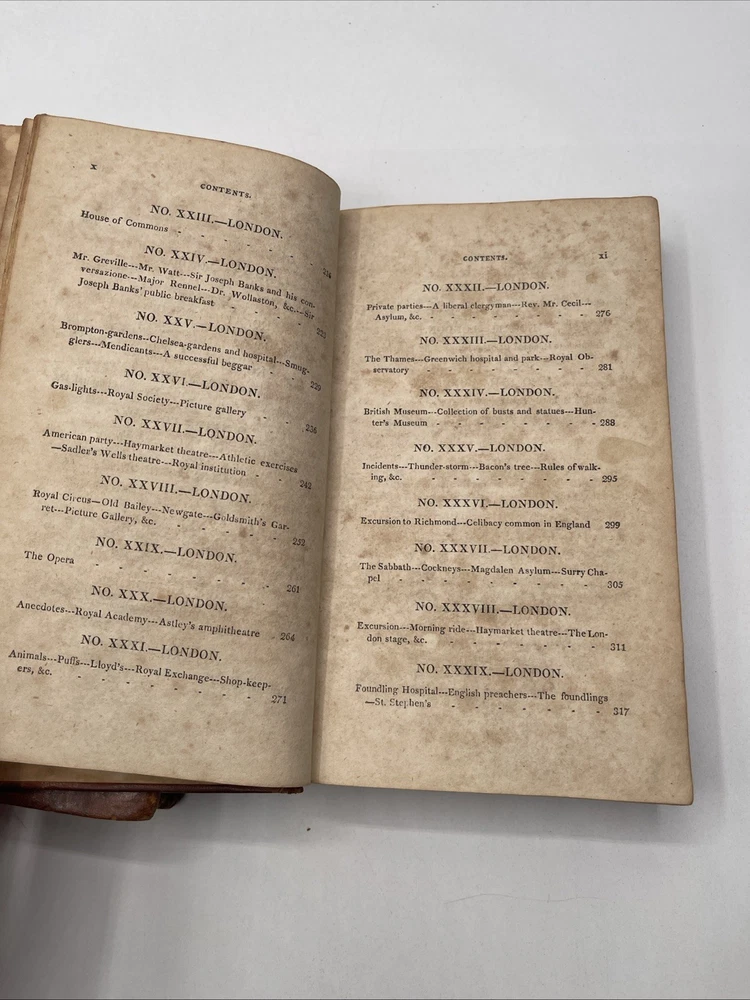 x
CONTENTS.
NO. XXIII.—LONDON.
House of Commons - - - - - - 214
NO. XXIV.—LONDON.
Mr. Greville---Mr. Watt---Sir Joseph Banks and his con-
versazione---Major Rennel---Dr. Wollaston, &c.---Sir
Joseph Banks' public breakfast - - - - 223
NO. XXV.—LONDON.
Brompton-gardens--Chelsea-gardens and hospital---Smug-
glers---Mendicants---A successful beggar - - 229
NO. XXVI.—LONDON.
Gas-lights---Royal Society---Picture gallery - - 236
NO. XXVII.—LONDON.
American party---Haymarket theatre---Athletic exercises
—Sadler's Wells theatre---Royal institution - - 242
NO. XXVIII.—LONDON.
Royal Circus—Old Bailey---Newgate---Goldsmith's Gar-
ret---Picture Gallery, &c. - - - - - 252
NO. XXIX.—LONDON.
The Opera - - - - - - - 261
NO. XXX.—LONDON.
Anecdotes---Royal Academy---Astley's amphitheatre - 264
NO. XXXI.—LONDON.
Animals---Puffs---Lloyd's---Royal Exchange---Shop-keep-
ers, &c. - - - - - - - 271
CONTENTS. xi
NO. XXXII.—LONDON.
Private parties---A liberal clergyman---Rev. Mr. Cecil---
Asylum, &c. - - - - - - - 276
NO. XXXIII.—LONDON.
The Thames---Greenwich hospital and park---Royal Ob-
servatory - - - - - - - 281
NO. XXXIV.—LONDON.
British Museum---Collection of busts and statues---Hun-
ter's Museum - - - - - - - 288
NO. XXXV.—LONDON.
Incidents---Thunder-storm---Bacon's tree---Rules of walk-
ing, &c. - - - - - - - 295
NO. XXXVI.—LONDON.
Excursion to Richmond---Celibacy common in England 299
NO. XXXVII.—LONDON.
The Sabbath---Cockneys---Magdalen Asylum---Surry Cha-
pel - - - - - - - - 305
NO. XXXVIII.—LONDON.
Excursion---Morning ride---Haymarket theatre---The Lon-
don stage, &c. - - - - - - 311
NO. XXXIX.—LONDON.
Foundling Hospital---English preachers---The foundlings
—St. Stephen's - - - - - - 317